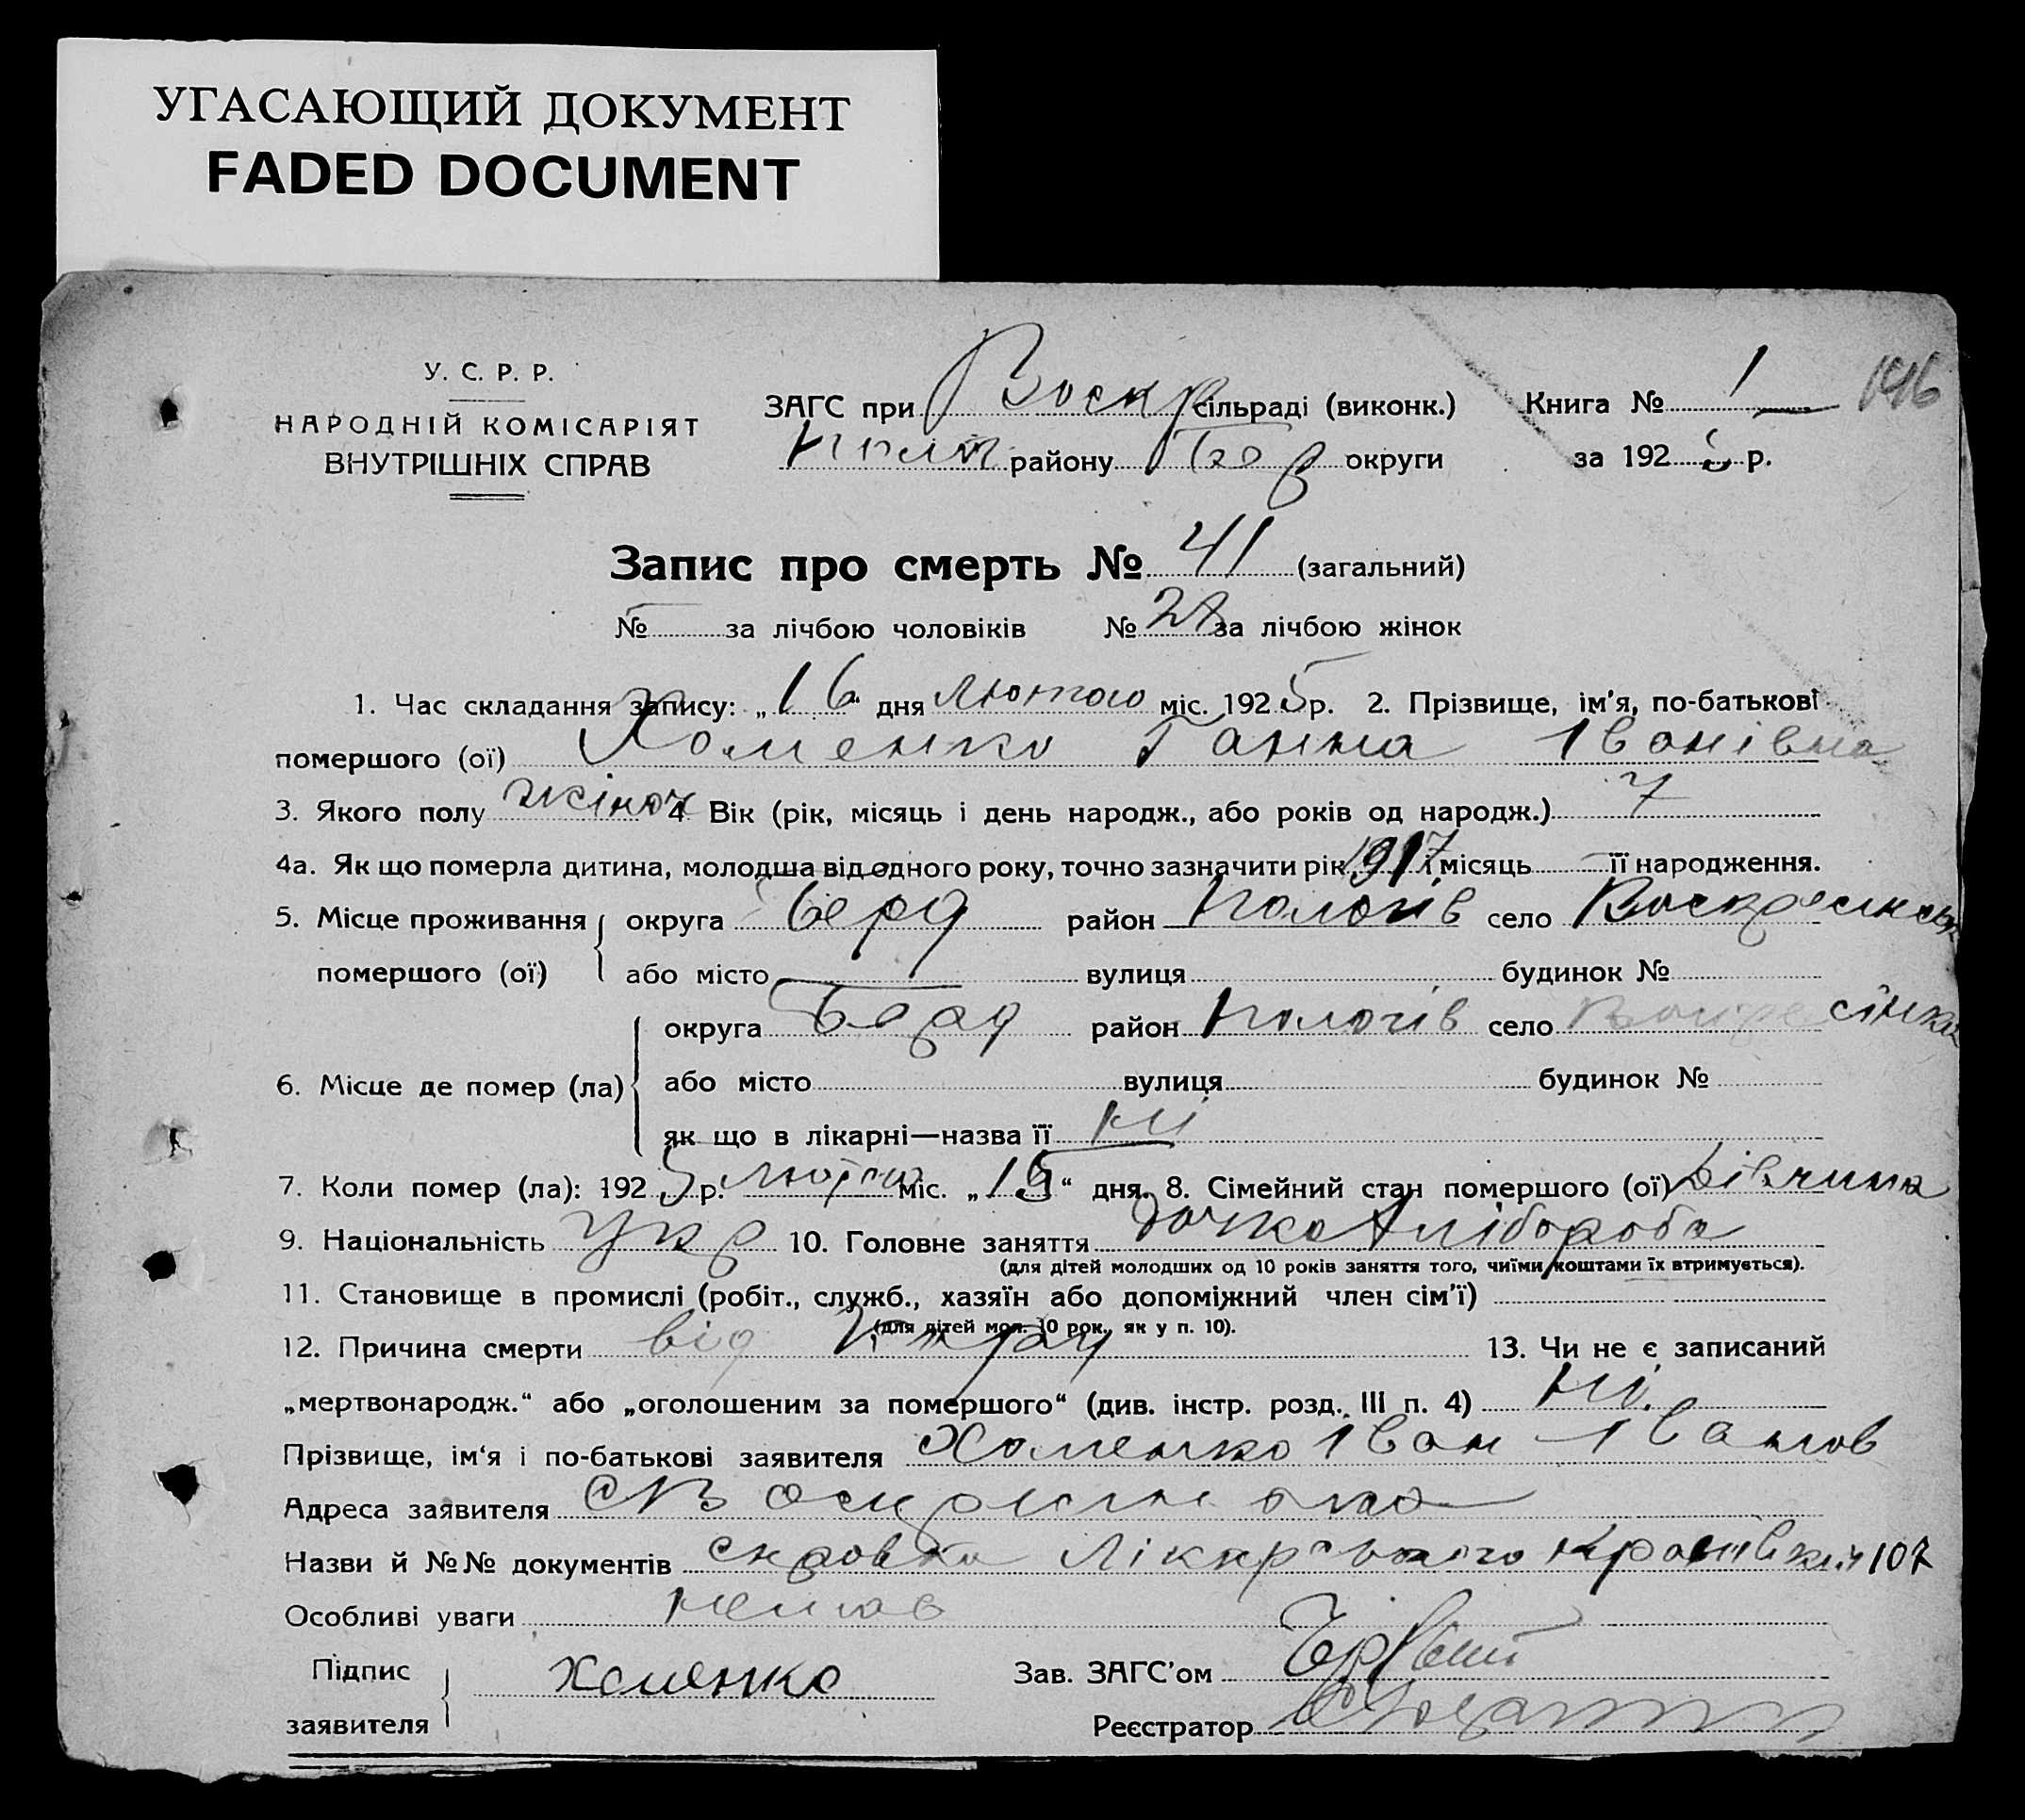 УГАСАЮЩИЙ ДОКУМЕНТ
FADED DOCUMENT
У. С. Р. Р.
НАРОДНІЙ КОМІСАРІЯТ
ВНУТРІШНІХ СПРАВ
ЗАГС при Воскр сільраді (виконк.)
району округи
Книга № 1
146
за 192 р.
Запис про смерть № 41 (загальний)
№ — за лічбою чоловіків № за лічбою жінок
1. Час складання запису: „16“ дня Лютого міс. 1925 р. 2. Прізвище, ім'я, по-батькові
помершого (ої) Хоменко Ганна Іванівна
3. Якого полу жіноч 4 Вік (рік, місяць і день народж., або років од народж.) 7
4а. Як що померла дитина, молодша від одного року, точно зазначити рік 1917 і місяць — її народження.
5. Місце проживання помершого (ої) округа Берд район Пологів село
або місто вулиця будинок №
6. Місце де помер (ла) округа Берд район Пологів село
або місто вулиця будинок №
як що в лікарні—назва її Ні
7. Коли помер (ла): 1925 р. Лютого міс. „15“ дня. 8. Сімейний стан помершого (ої) Дівчина
9. Національність Укр 10. Головне заняття дочка Хлібороба
(для дітей молодших од 10 років заняття того, чиїми коштами їх втримується).
11. Становище в промислі (робіт., служб., хазяїн або допоміжний член сім'ї)
(для дітей мол. 10 рок., як у п. 10).
12. Причина смерти від 13. Чи не є записаний
„мертвонародж.“ або „оголошеним за помершого“ (див. інстр. розд. III п. 4) Ні.
Прізвище, ім'я і по-батькові заявителя Хоменко Іван Іванов
Адреса заявителя
Назви й №№ документів 107
Особливі уваги
Підпис заявителя Хоменко
Зав. ЗАГС'ом
Реєстратор